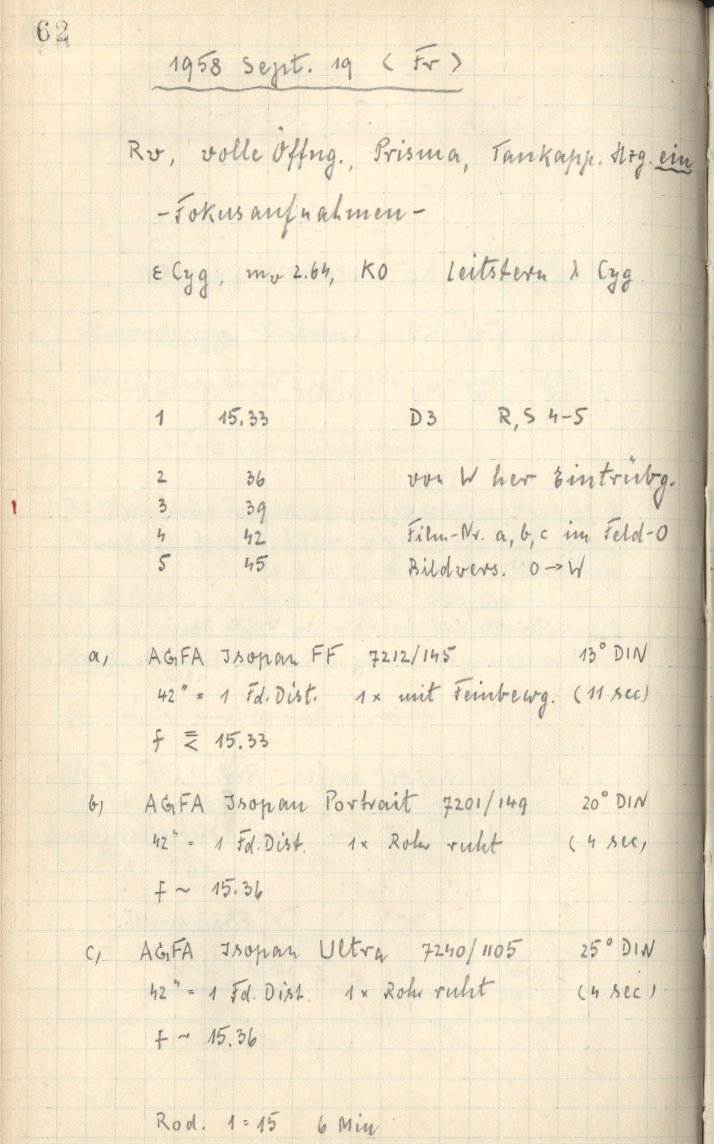 62
1958 Sept. 19 (Fr)
Rv, volle Öffng., Prisma, Tankapp. Hzg. ein
- Fokusaufnahmen -
ε Cyg, mv 2.64, K0 Leitstern λ Cyg
1 15.33 D3 R, S 4-5
2 36 von W her Eintrübg.
3 39
4 42 Film-Nr. a, b, c im Feld-O
5 45 Bildvers. O → W
a, AGFA Isopan FF 7212/145 13° DIN
42" = 1 Fd. Dist. 1 x mit Feinbewg. (11 sec)
f 15.33
b, AGFA Isopan Portrait 7201/149 20° DIN
42" = 1 Fd. Dist. 1 x Rohr ruht (4 sec)
f ~ 15.36
c, AGFA Isopan Ultra 7240/1105 25° DIN
42" = 1 Fd. Dist. 1 x Rohr ruht (4 sec)
f ~ 15.36
Rod. 1 = 15 6 Min